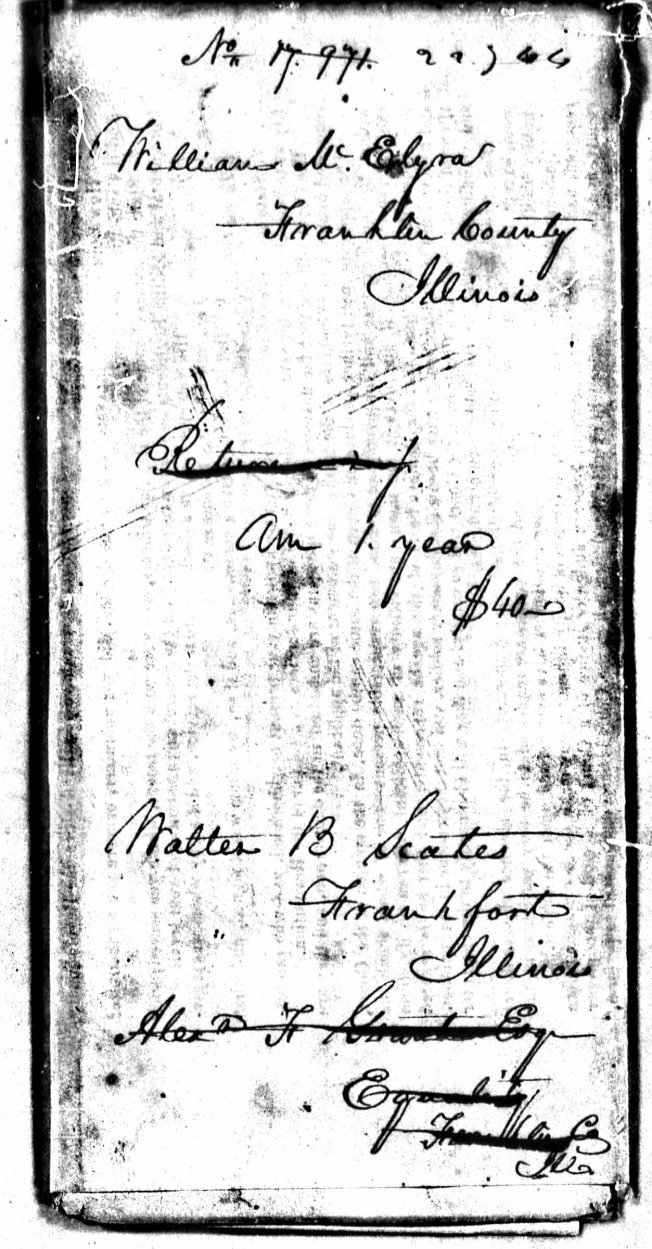 No. 17.971.
William Mc. Elyea
Franklin County
Illinois
Return
Am 1. year
$40-
Walter B Scates
Frankfort
Illinois
Alexr F Grant Esq
Equality
Franklin Co
Ills